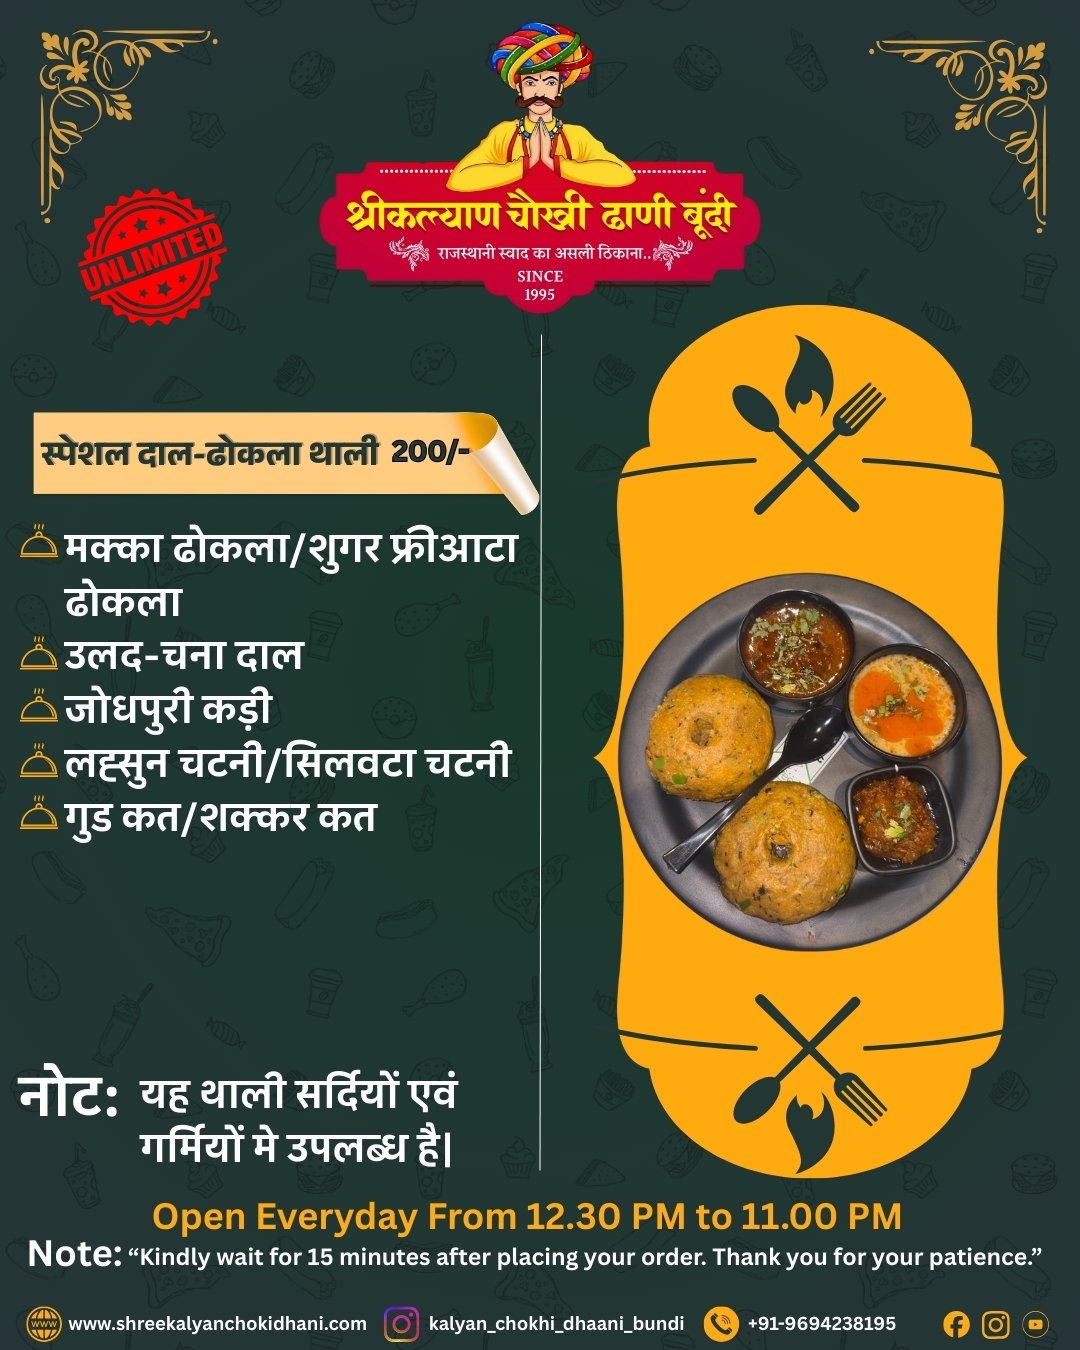 श्रीकल्याण चौखी ढाणी बूंदी
राजस्थानी स्वाद का असली ठिकाना..
SINCE
1995
UNLIMITED
स्पेशल दाल-ढोकला थाली 200/-
मक्का ढोकला/शुगर फ्रीआटा
ढोकला
उलद-चना दाल
जोधपुरी कड़ी
लह्सुन चटनी/सिलवटा चटनी
गुड कत/शक्कर कत
नोट: यह थाली सर्दियों एवं
गर्मियों मे उपलब्ध है|
Open Everyday From 12.30 PM to 11.00 PM
Note: “Kindly wait for 15 minutes after placing your order. Thank you for your patience.”
www www.shreekalyanchokidhani.com kalyan_chokhi_dhaani_bundi +91-9694238195